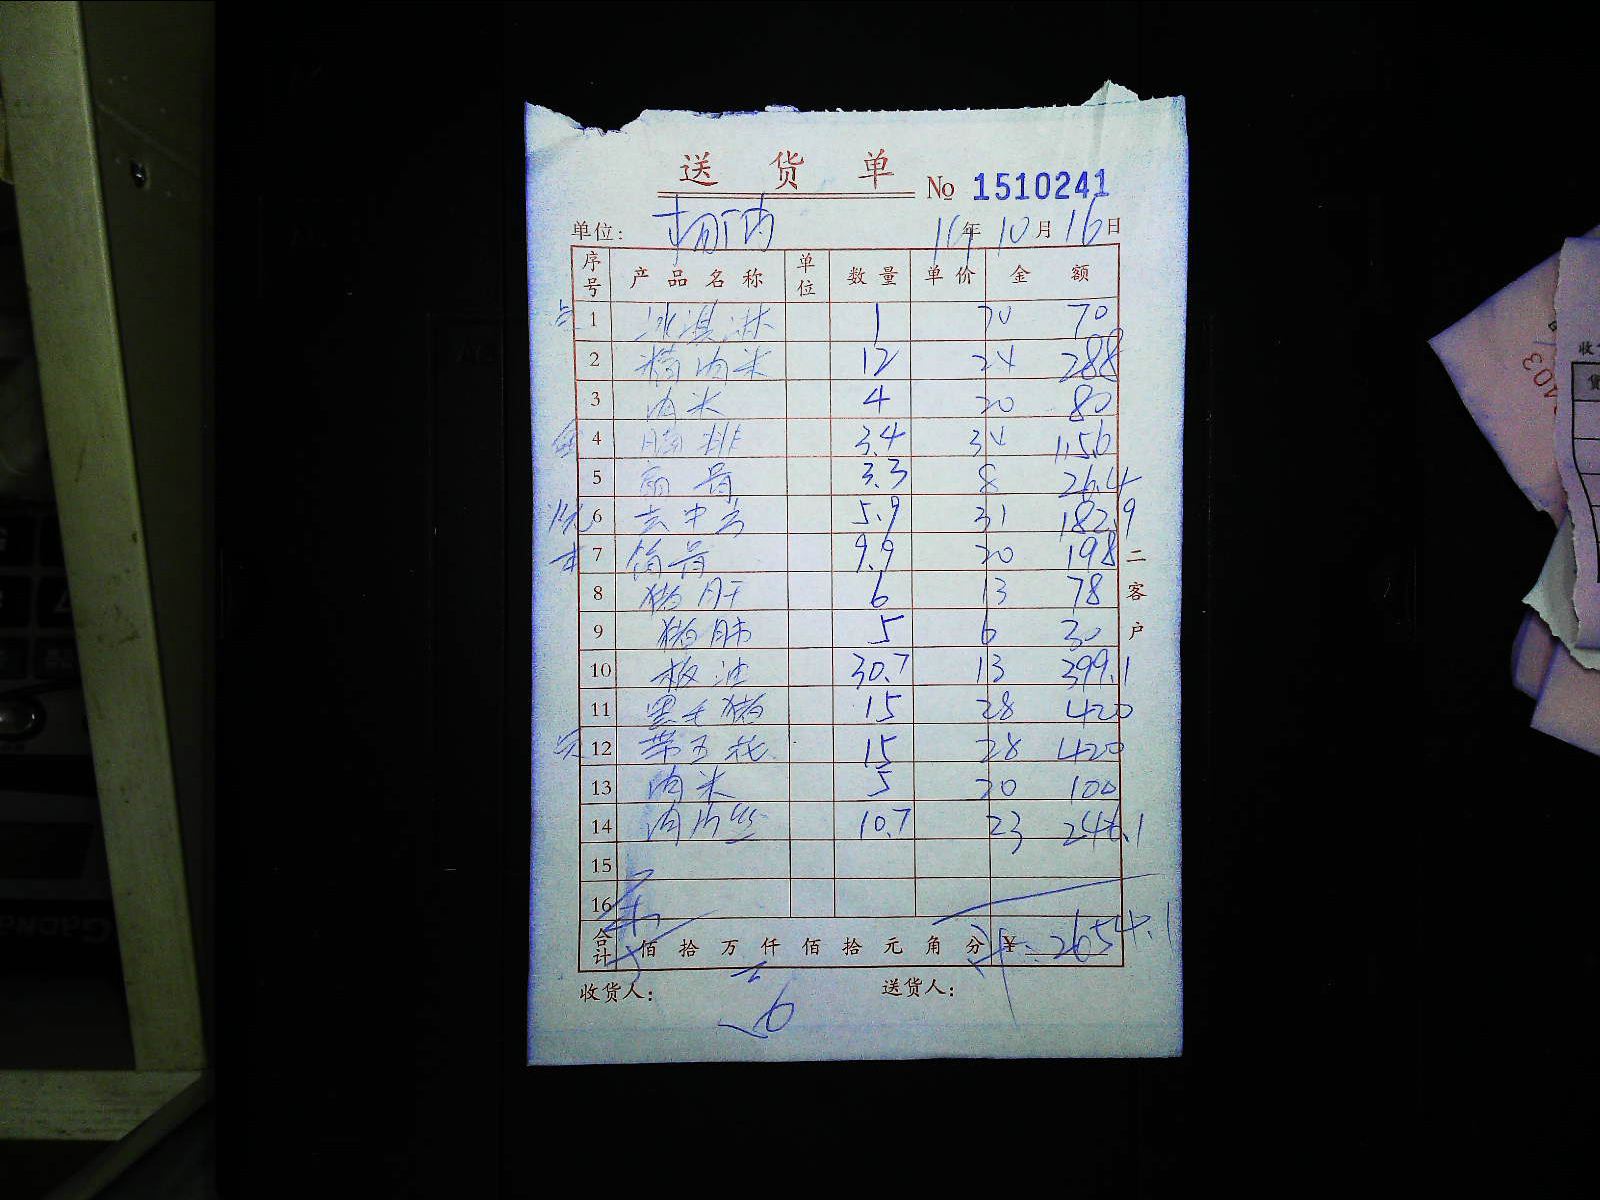 送货单 No 1510241
单位: 年 10月 16日
序号 产品名称 单位 数量 单价 金额
1 冰淇淋 1 70 70
2 精肉米 12 24 288
3 肉米 4 20 80
4 排 3.4 34 115.6
5 骨 3.3 8 26.4
6 去中方 5.9 31 182.9
7 筒骨 9.9 20 198
8 猪肝 6 13 78
9 猪肺 5 6 30
10 板油 30.7 13 399.1
11 黑毛猪 15 28 420
12 带五花 15 28 420
13 肉米 5 20 100
14 肉丝 10.7 23 246.1
15
16
合计 佰拾万仟佰拾元角分 ¥: 2654.1
收货人: 送货人:
二客户